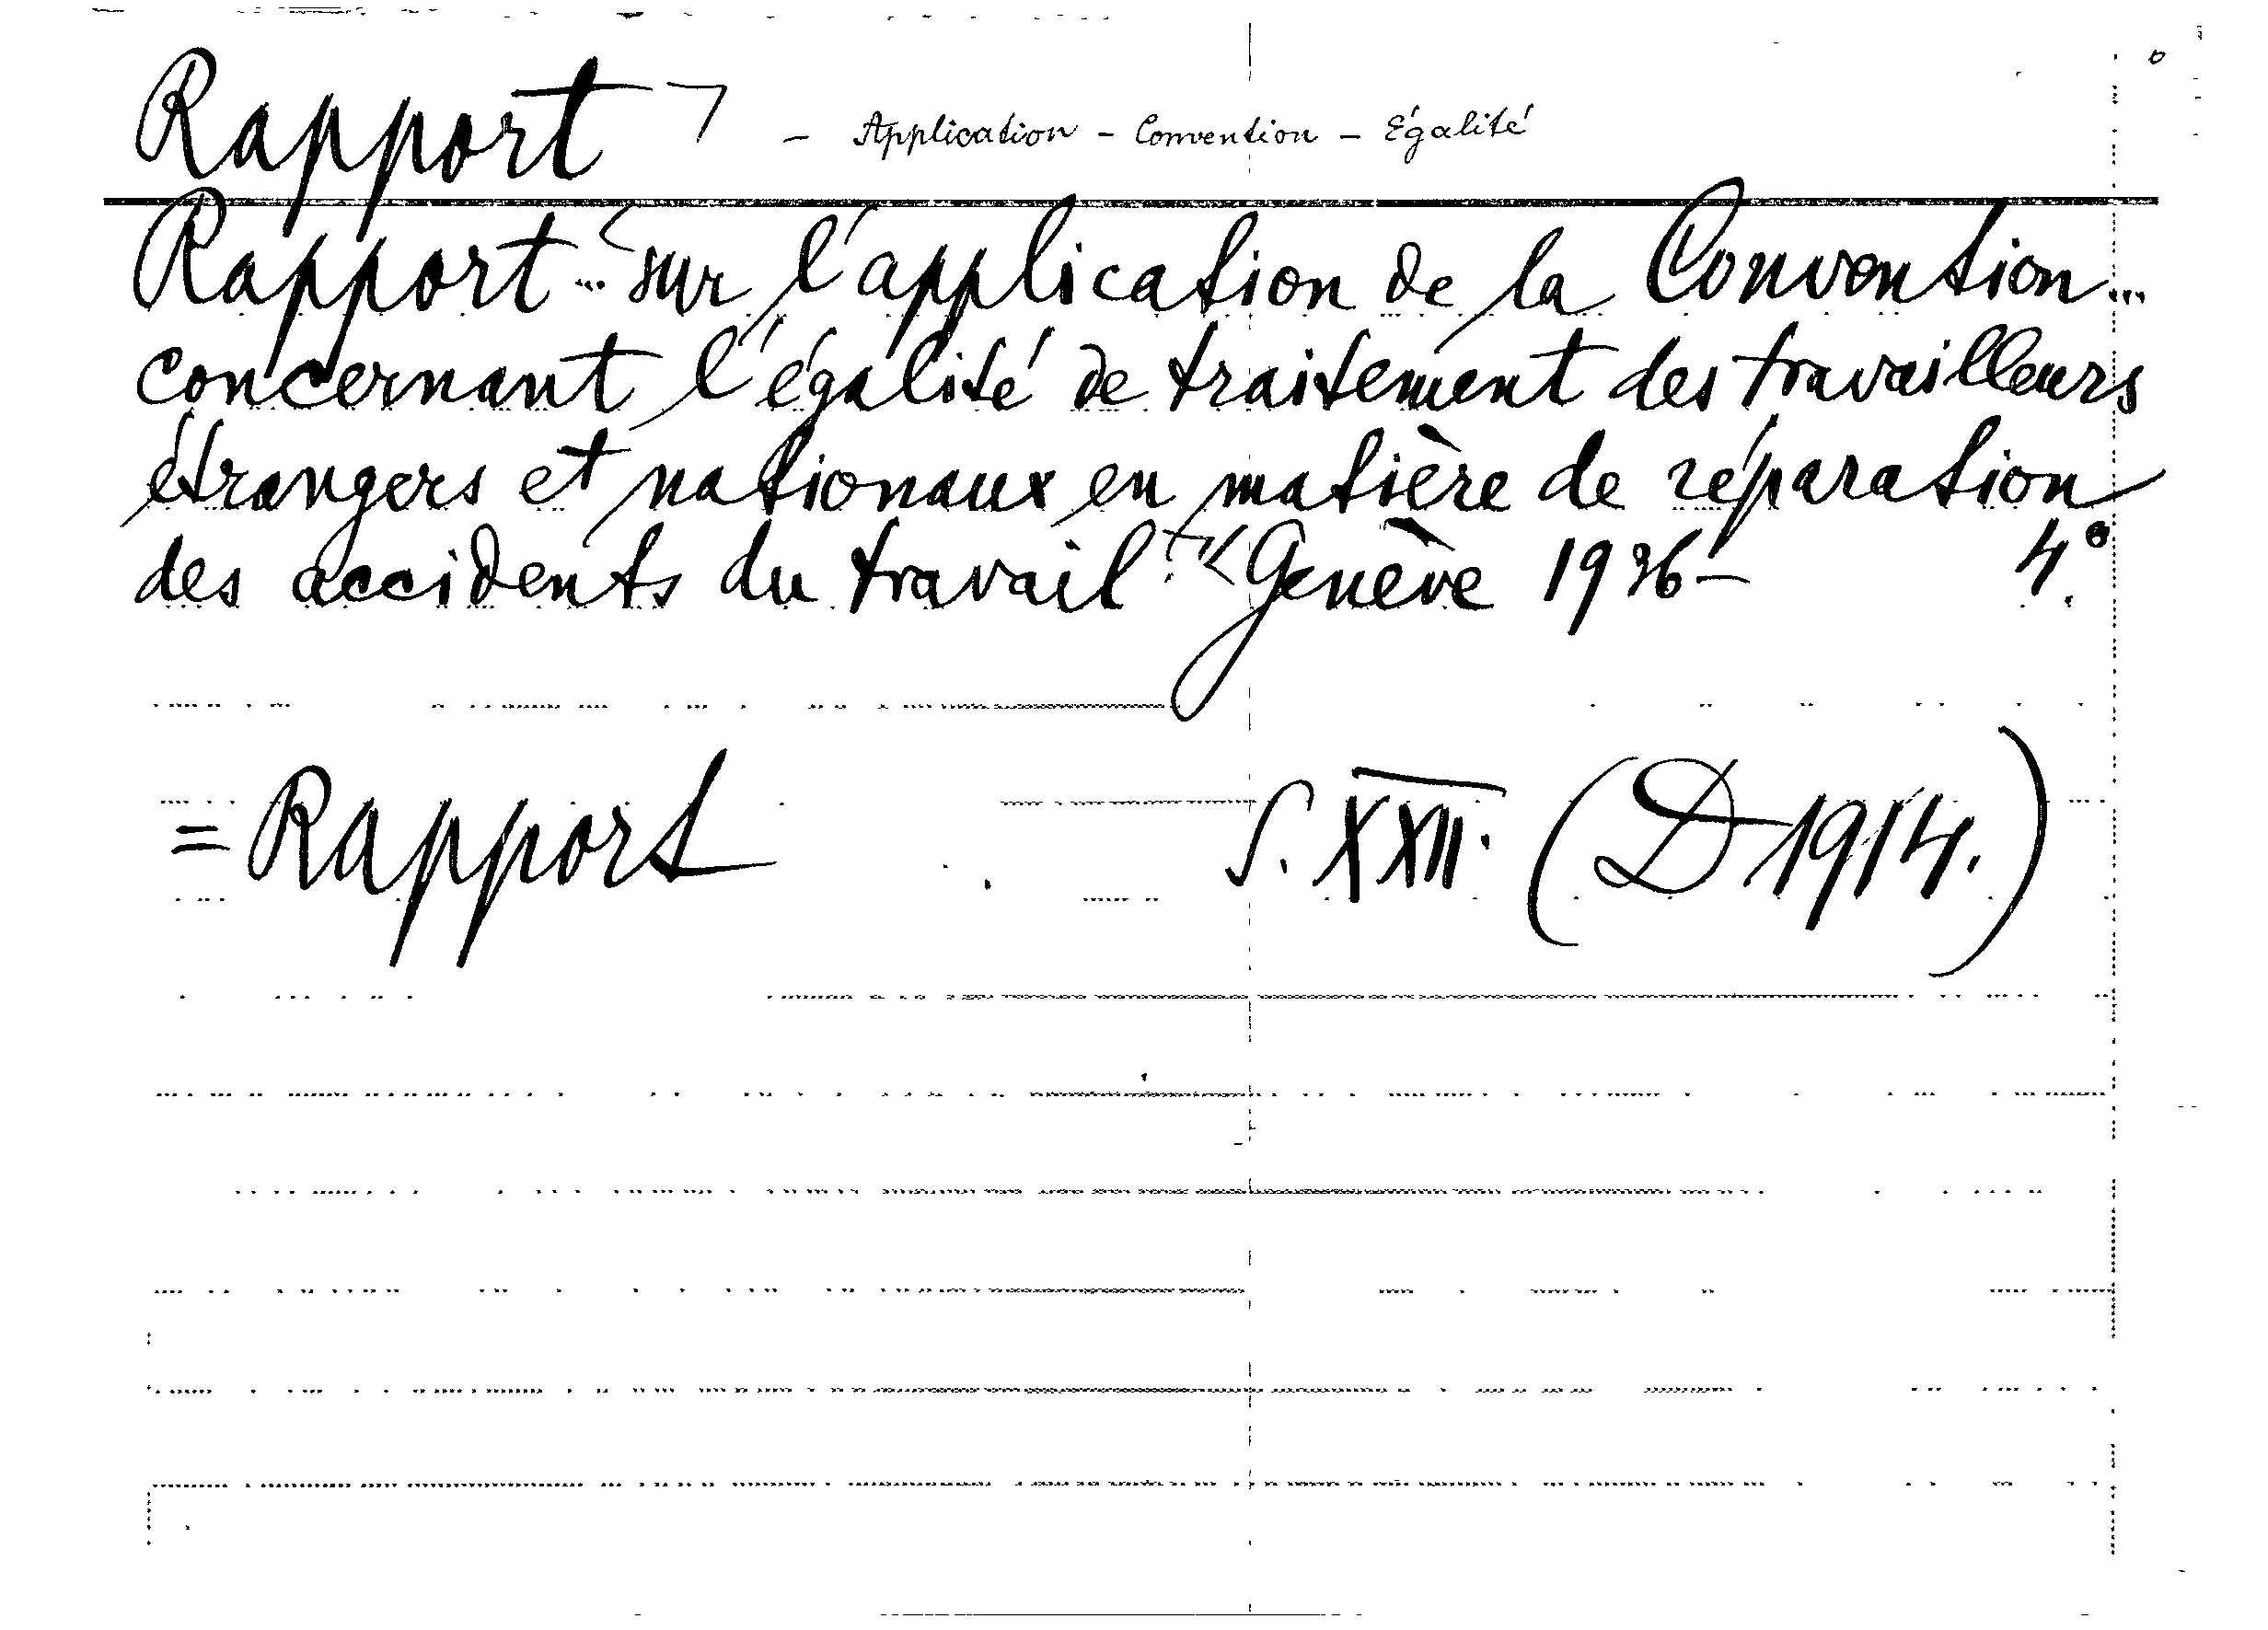 Rapport ⁊ - Application - Convention - Égalité
Rapport ... sur l'application de la Convention ...
concernant l'égalité de traitement des travailleurs
étrangers et nationaux en matière de réparation
des accidents du travail ... Genève 1936 - 4°.
= Rapport S. XXII. (D 1914.)